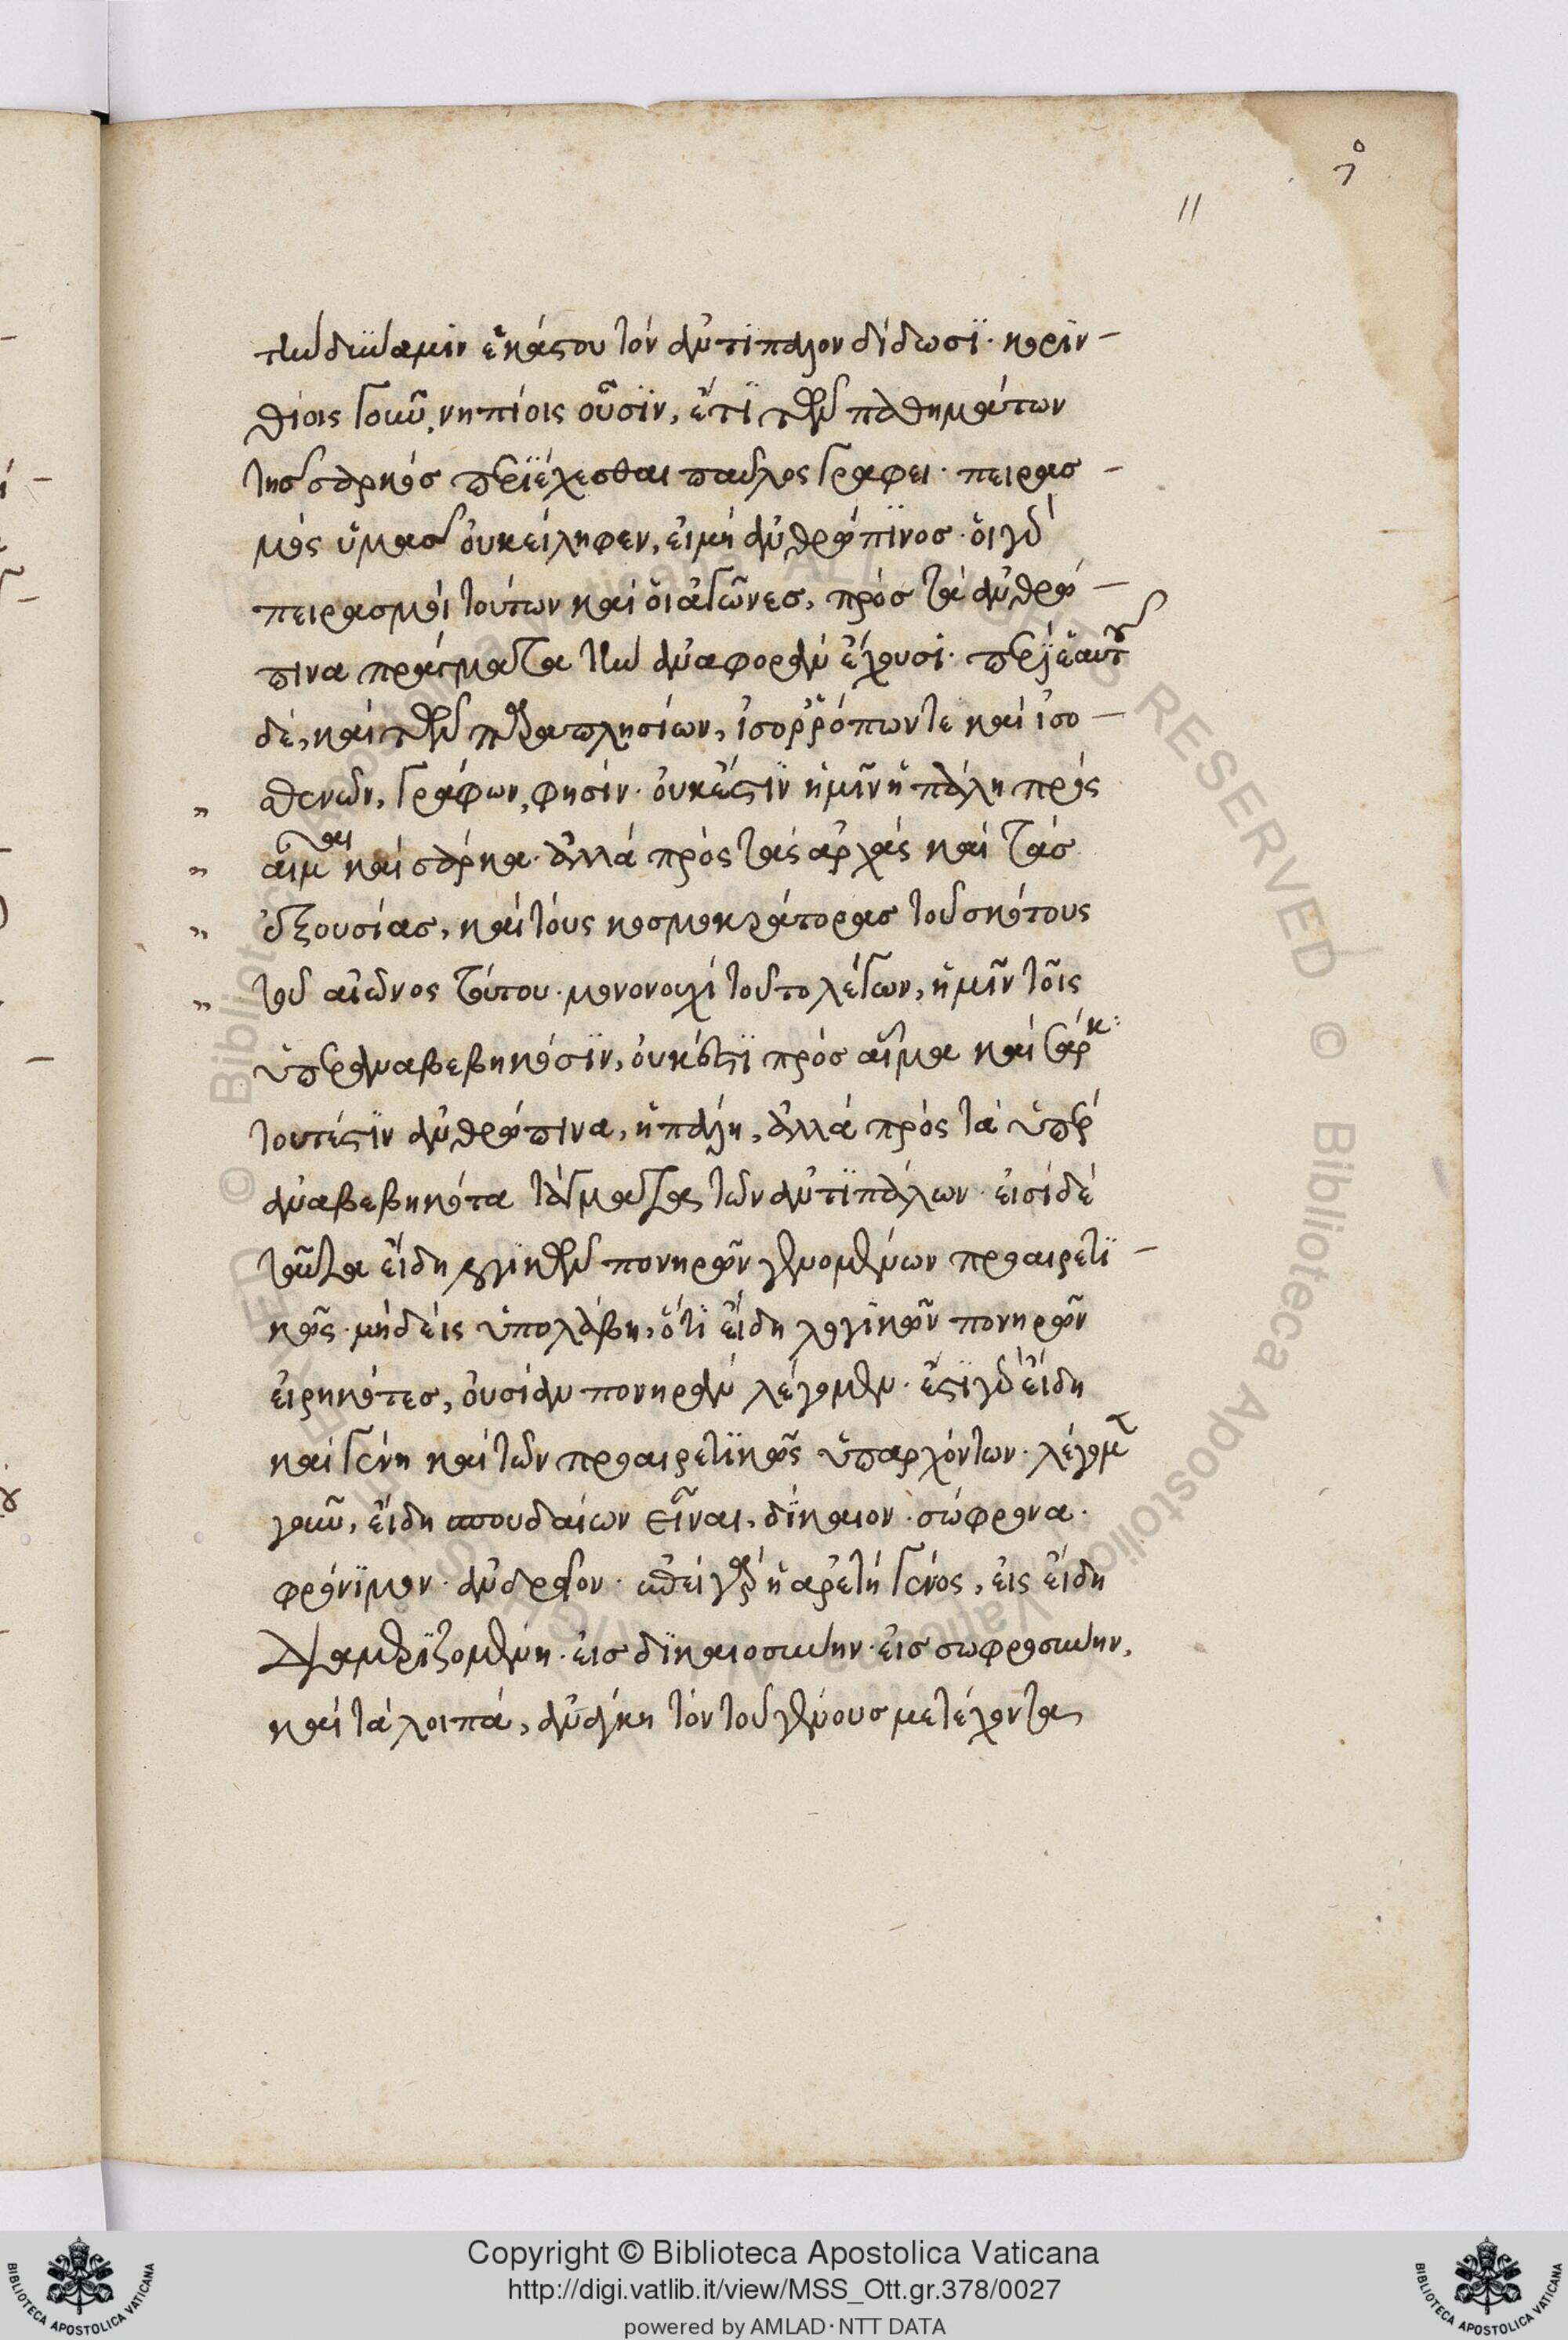 11
τὴν δύναμιν ἑκάστου τὸν ἀντίπαλον δίδωσι· κοριν-
θίοις γοῦν, νηπίοις οὖσιν, ἔτι τῶν παθημάτων
τῆς σαρκὸς περιέχεσθαι παῦλος γράφει· πειρασ-
μὸς ὑμᾶς οὐκ εἴληφεν, εἰ μὴ ἀνθρώπινος· οἱ γὰρ
πειρασμοὶ τούτων καὶ οἱ ἀγῶνες, πρὸς τὰ ἀνθρώ-
πινα πράγματα τὴν ἀναφορὰν ἔχουσι· περὶ ἑαυτοῦ
δὲ, καὶ τῶν παραπλησίων, ἰσορρόπων τε καὶ ἰσο-
σθενῶν, γράφων, φησίν· οὐκ ἔστιν ἡμῖν ἡ πάλη πρὸς
αἷμα καὶ σάρκα· ἀλλὰ πρὸς τὰς ἀρχὰς καὶ τὰς
ἐξουσίας, καὶ τοὺς κοσμοκράτορας τοῦ σκότους
τοῦ αἰῶνος τούτου· μονονουχὶ τοῦτο λέγων, ἡμῖν τοῖς
ὑπεραναβεβηκόσιν, οὐκ ἔστι πρὸς αἷμα καὶ σάρκ:
τουτέστιν ἀνθρώπινα, ἡ πάλη, ἀλλὰ πρὸς τὰ ὑπὲρ
ἀναβεβηκότα τάγματα τῶν ἀντιπάλων· εἰσὶ δὲ
ταῦτα εἴδη λογικῶν πονηρῶν γενομένων προαιρετι-
κῶς· μὴ δεὶς ὑπολάβη, ὅτι εἴδη λογικῶν πονηρῶν
εἰρηκότες, οὐσίαν πονηρὰν λέγομεν· ἔστι γὰρ εἴδη
καὶ γένη καὶ τῶν προαιρετικῶς ὑπαρχόντων· λέγομεν
γοῦν, εἴδη σπουδαίων εἶναι, δίκαιον· σώφρονα·
φρόνιμον· ἀνδρεῖον· ἐπεὶ γὰρ ἡ ἀρετὴ γένος, εἰς εἴδη
διαμεριζομένη· εἰς δικαιοσύνην· εἰς σωφροσύνην,
καὶ τὰ λοιπά, ἀνάγκη τὸν τοῦ γένους μετέχοντα
Copyright © Biblioteca Apostolica Vaticana
http://digi.vatlib.it/view/MSS_Ott.gr.378/0027
powered by AMLAD·NTT DATA